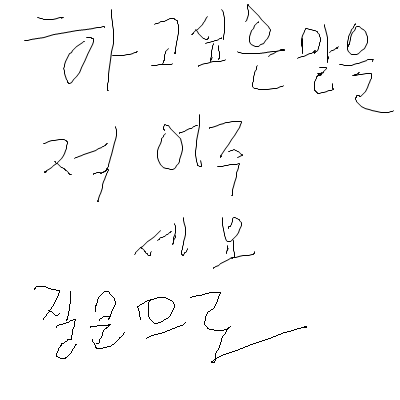 하고싶은말을
적어주
세요
질문으로